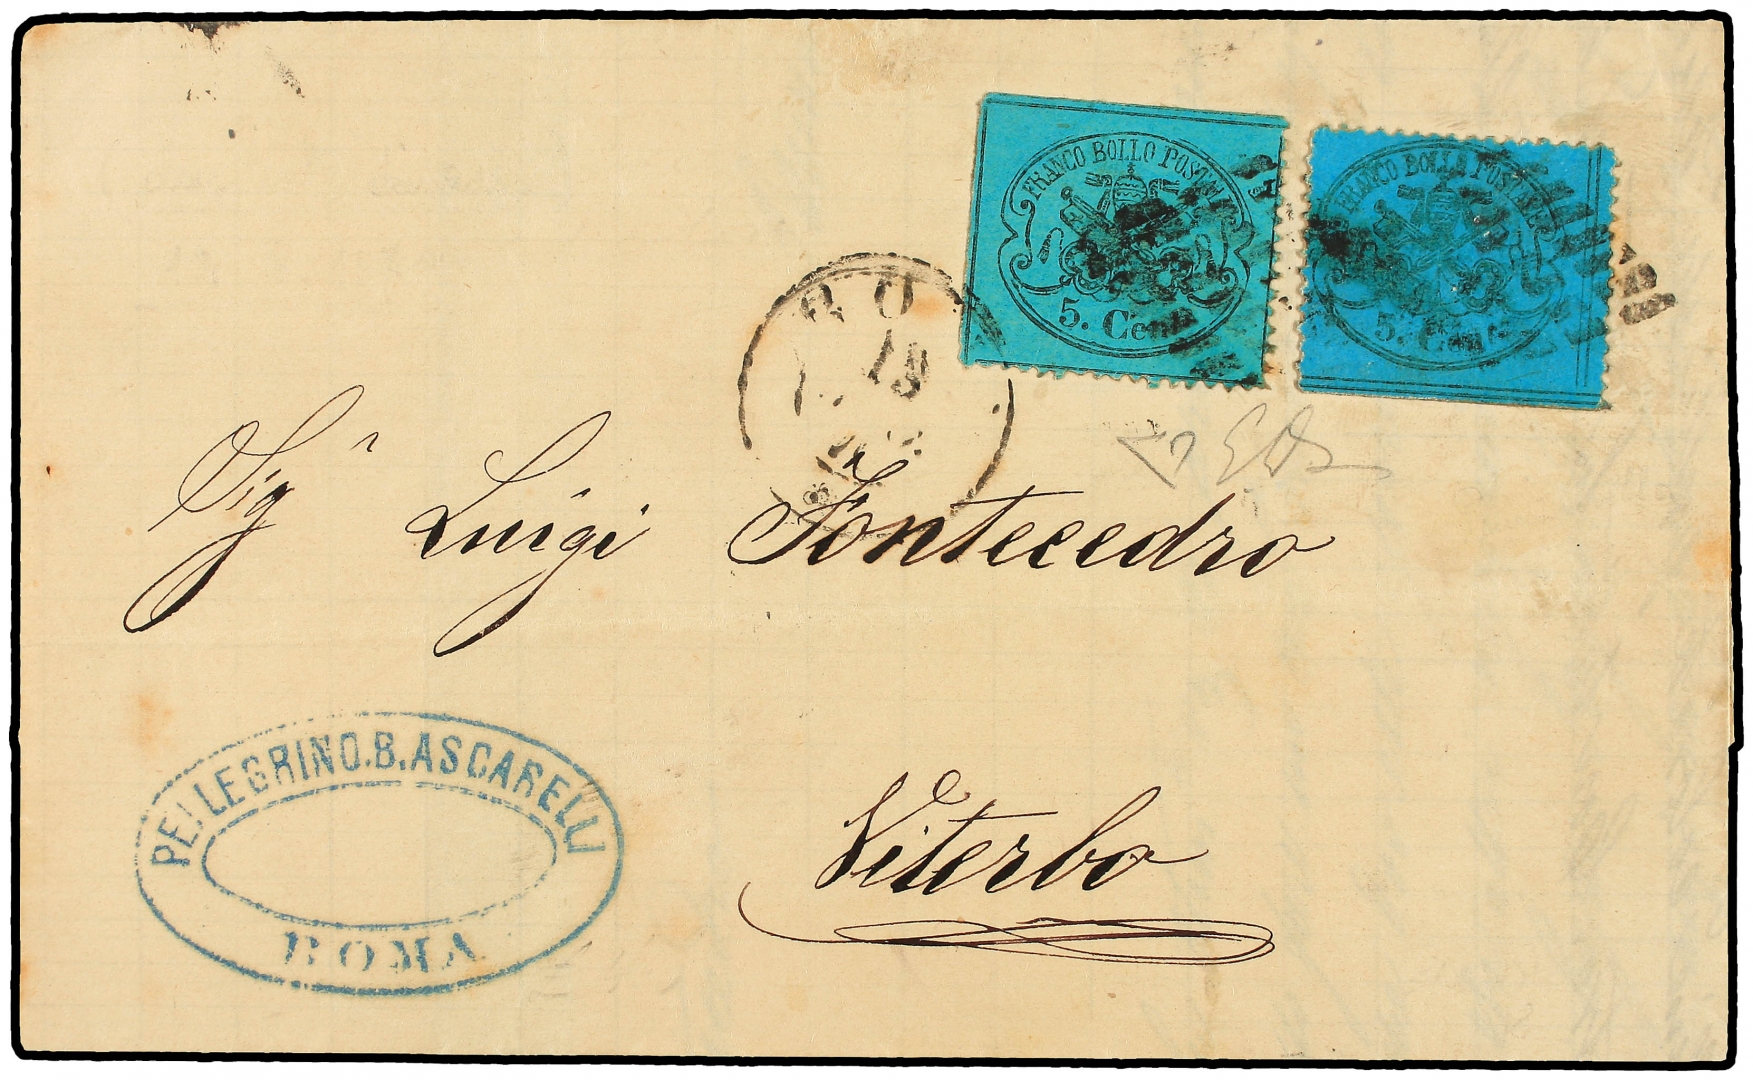 FRANCO BOLLO POSTALE
5. Cent
FRANCO BOLLO POSTALE
5. Cent
RO
19
Sigr Luigi Fontecedro
PELLEGRINO.B.ASCARELLI
ROMA
Viterbo